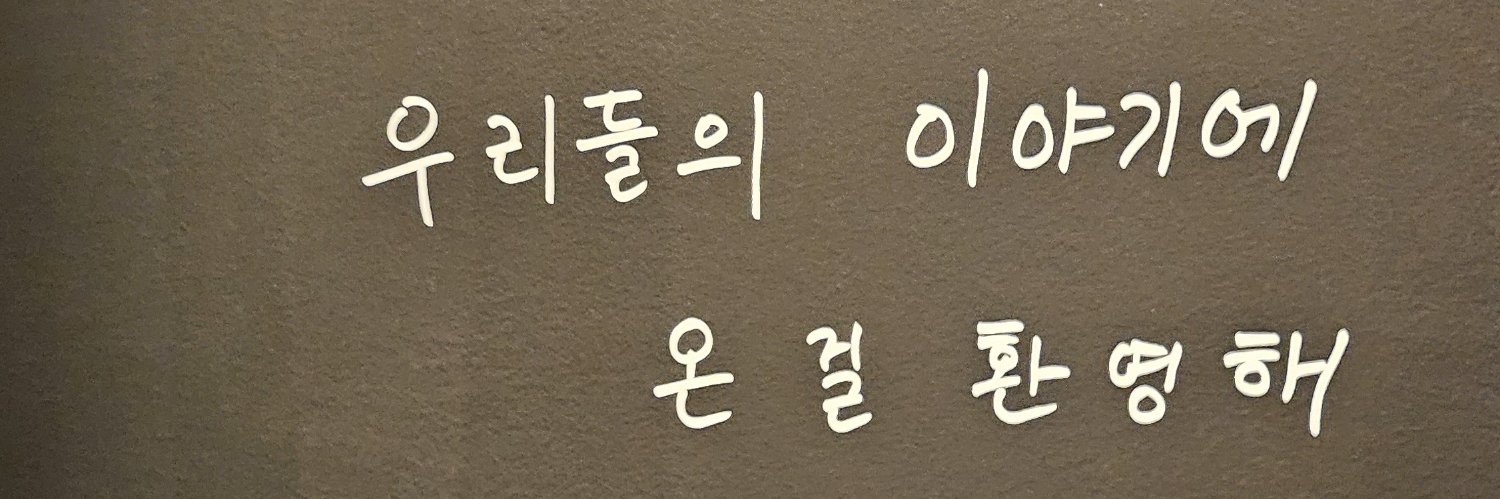 우리들의 이야기에
온 걸 환영해